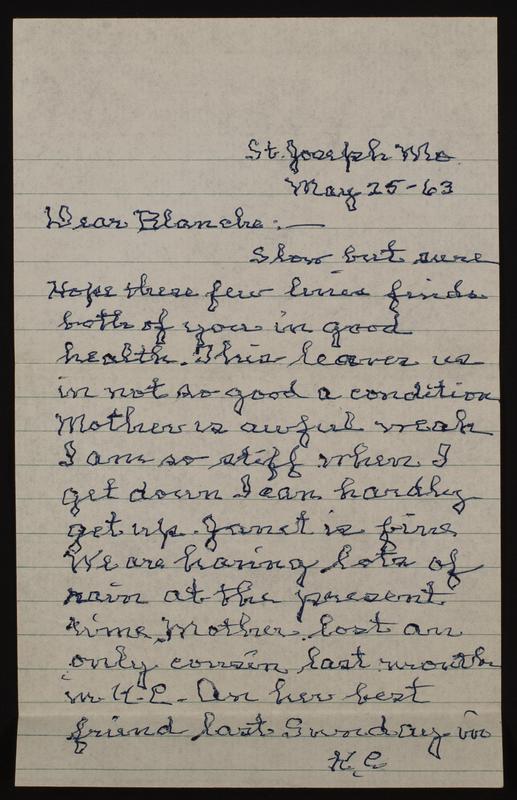 St. Joseph Mo.
May 25-63
Dear Blanche:—
Slow but sure
Hope these few lines finds
both of you in good
health. This leaves us
in not so good a condition
Mother is awful weak
I am so stiff when I
get down I can hardly
get up. Janet is fine
We are having lots of
rain at the present
time, Mother lost an
only cousin last month
in K.C. An her best
friend last Sunday in
K.C